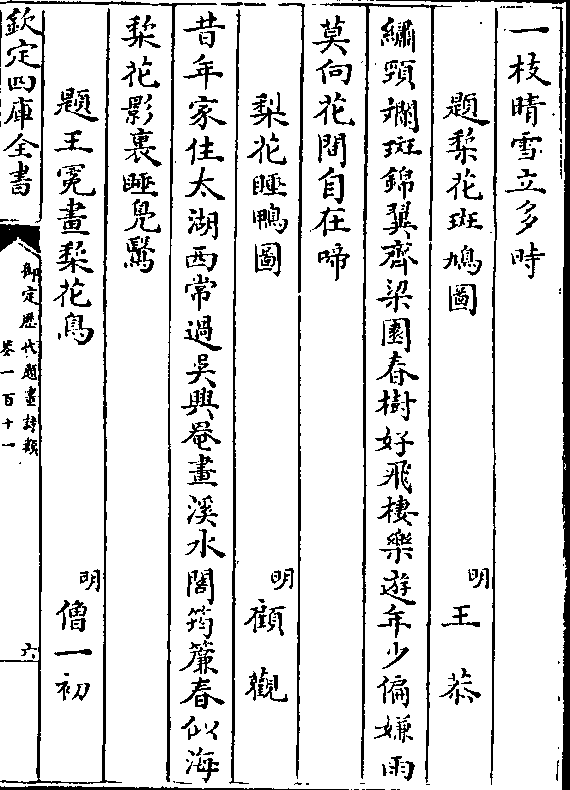 一枝晴雪立多時
題梨花斑鳩圖　明王恭
繡頸斕斑錦翼齊梁園春樹好飛棲樂遊年少偏嫌雨
莫向花間自在啼
梨花睡鴨圖　明顧觀
昔年家住太湖西常過吳興罨畫溪水閣筠簾春似海
梨花影裏睡鳬鷖
題王冕畫梨花鳥　明僧一初
欽定四庫全書
御定歷代題畫詩類
卷一百十一
六